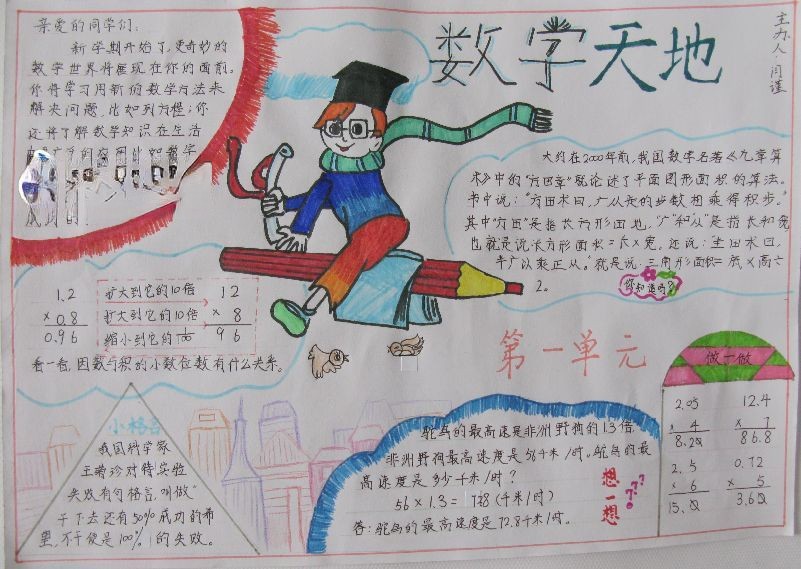 亲爱的同学们：
新学期开始了，更奇妙的
数学世界将展现在你的面前。
你将学习用新的数学方法来
解决问题，比如列方程；你
还将了解数学知识在生活
数学天地
主办人：闫谨
大约在2000年前，我国数字名著《九章算
术》中的“方田章”就论述了平面图形面积的算法。
书中说：“方田术曰，广从步的步数相乘得积步。”
其中“方田”是指长方形田地，“广”和“从”是指长和宽
也就是说长方形面积=长×宽。还说：“圭田术曰，
半广以乘正从。”就是说：三角形面积=底×高÷
2。
你知道吗？
1.2 扩大到它的10倍 12
×0.8 扩大到它的10倍 × 8
0.96 缩小到它的1/100 96
看一看，因数与积的小数位数有什么关系。
第一单元
小格言
我国科学家
王菊珍对待实验
失败有句格言，叫做“
干下去还有50%成功的希
望，不干便是100%的失败。
鸵鸟的最高速是非洲野狗的1.3倍
非洲野狗最高速度是56千米/时。鸵鸟的最
高速度是多少千米/时？
56×1.3= (千米/时)
答：鸵鸟的最高速度是72.8千米/时。
想一想
???
做一做
2.05 12.4
× 4 × 7
8.20 86.8
2.5 0.72
× 6 × 5
15.0 3.60